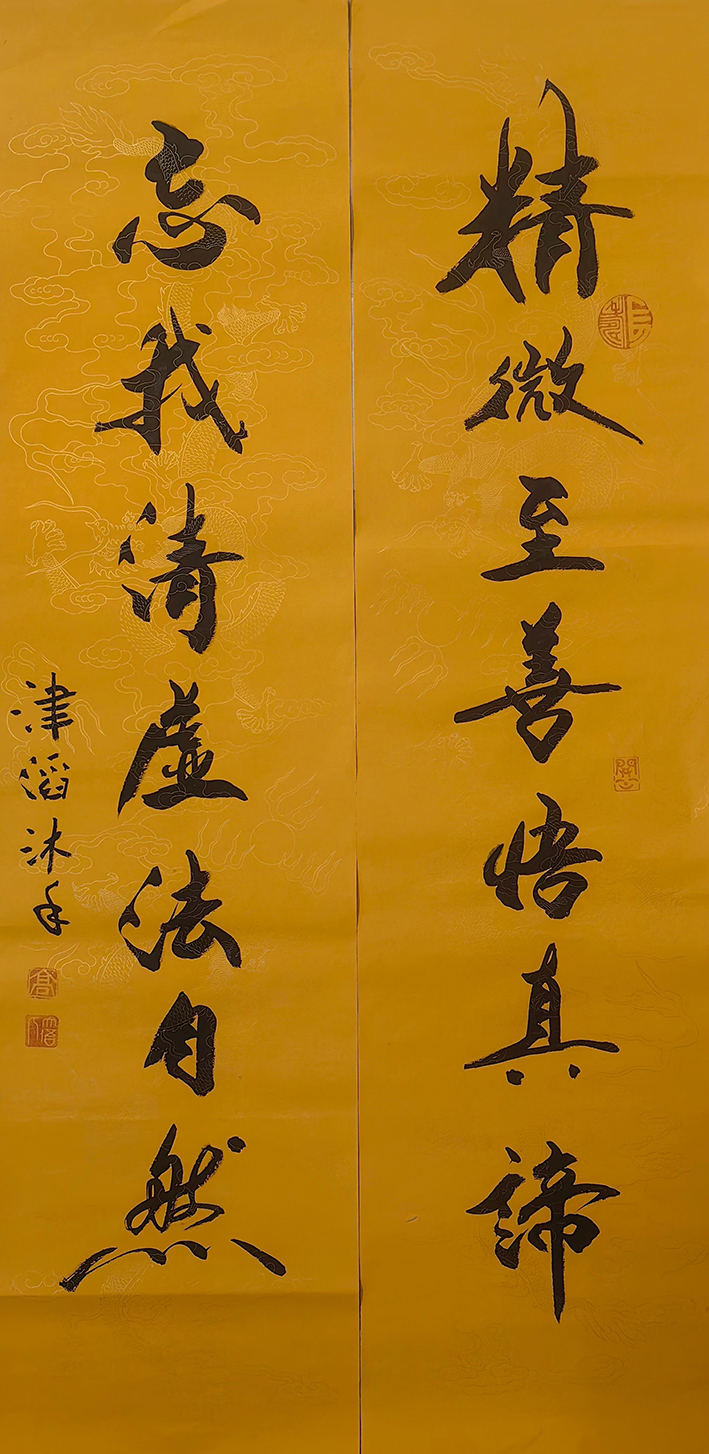 精微至善悟真諦
忘我清虛法自然
津滔沐手